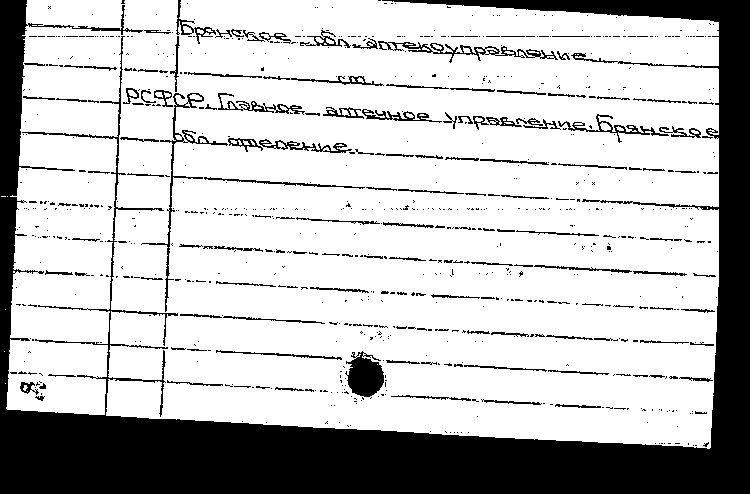 Брянское обл. аптекоуправление.
см.
РСФСР. Главное аптечное управление. Брянское
обл. отделение.